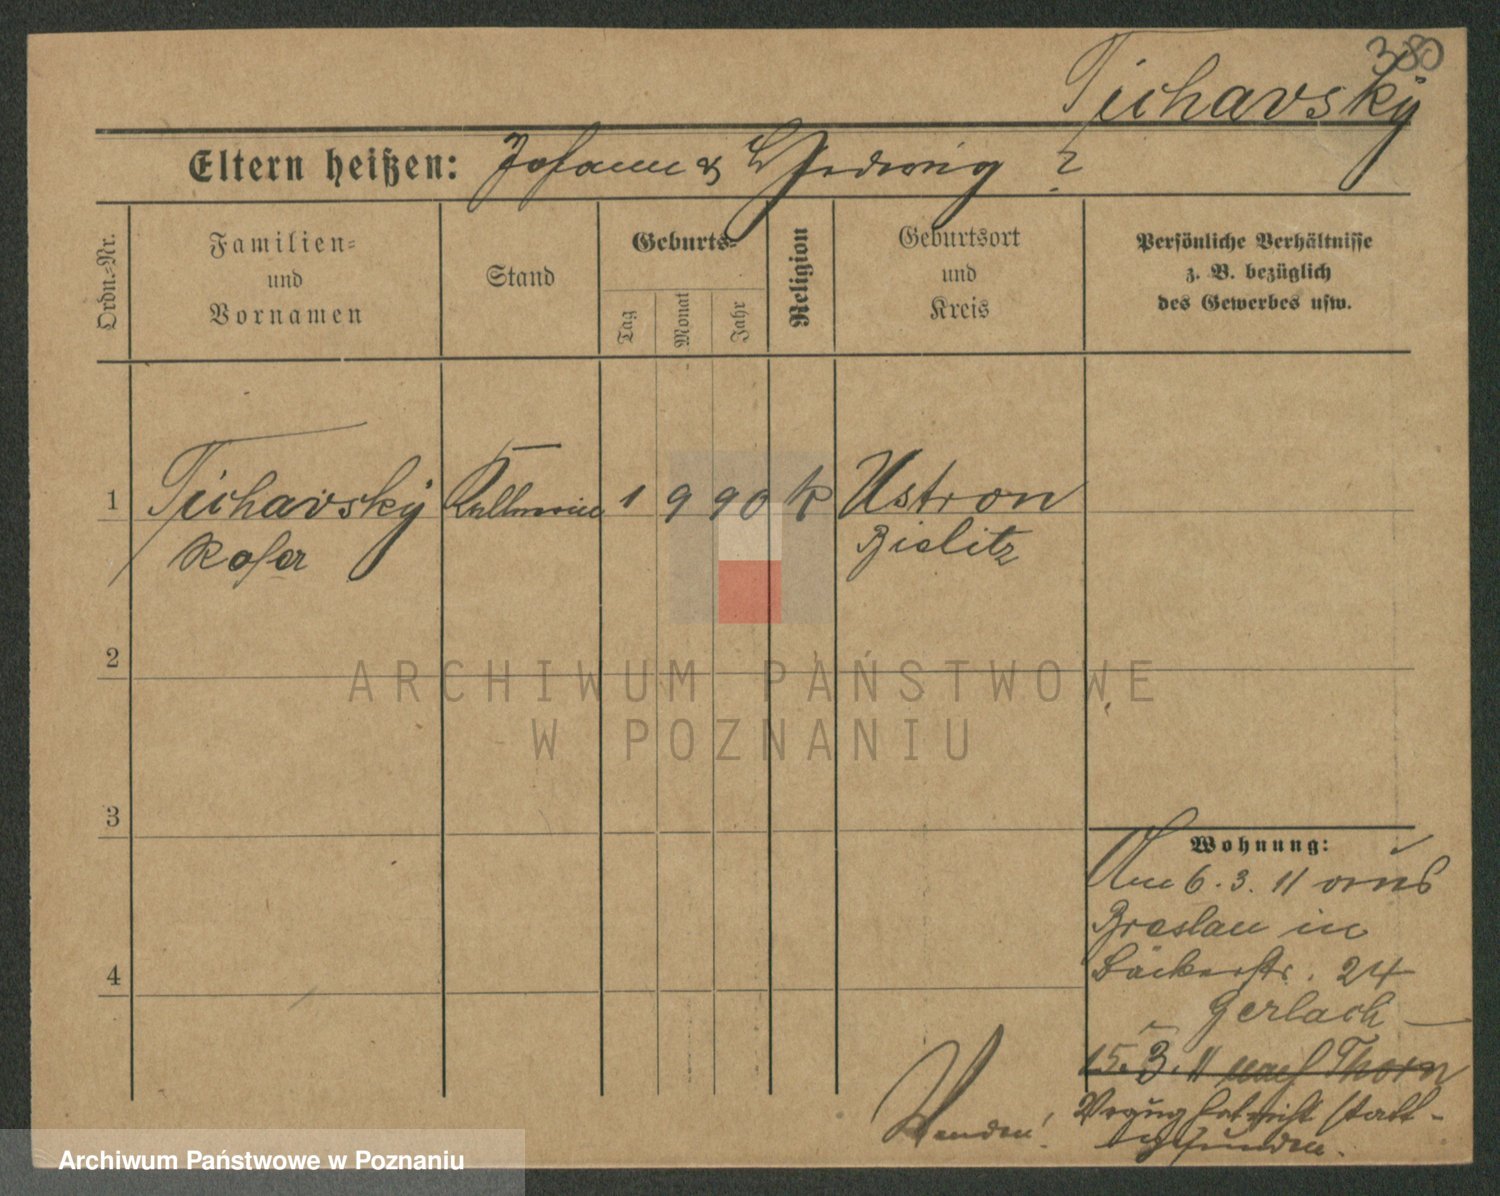 380
Tichavský
Eltern heißen: Johann & Hedwig ?
Ordn.=Nr.
Familien=
und
Vornamen
Stand
Geburts=
Tag
Monat
Jahr
Religion
Geburtsort
und
Kreis
Persönliche Verhältnisse
z. B. bezüglich
des Gewerbes usw.
1 Tichavský Kellnerin 1 9 90 K Ustron
Rosa Bielitz
2
3
4
Wohnung:
Am 6. 3. 11 aus
Breslau in
Bäckerstr. 24
Gerlach
15. 3. 11 nach Thorn
Verzug hat nicht statt-
gefunden.
Wenden!
ARCHIWUM PAŃSTWOWE
W POZNANIU
Archiwum Państwowe w Poznaniu